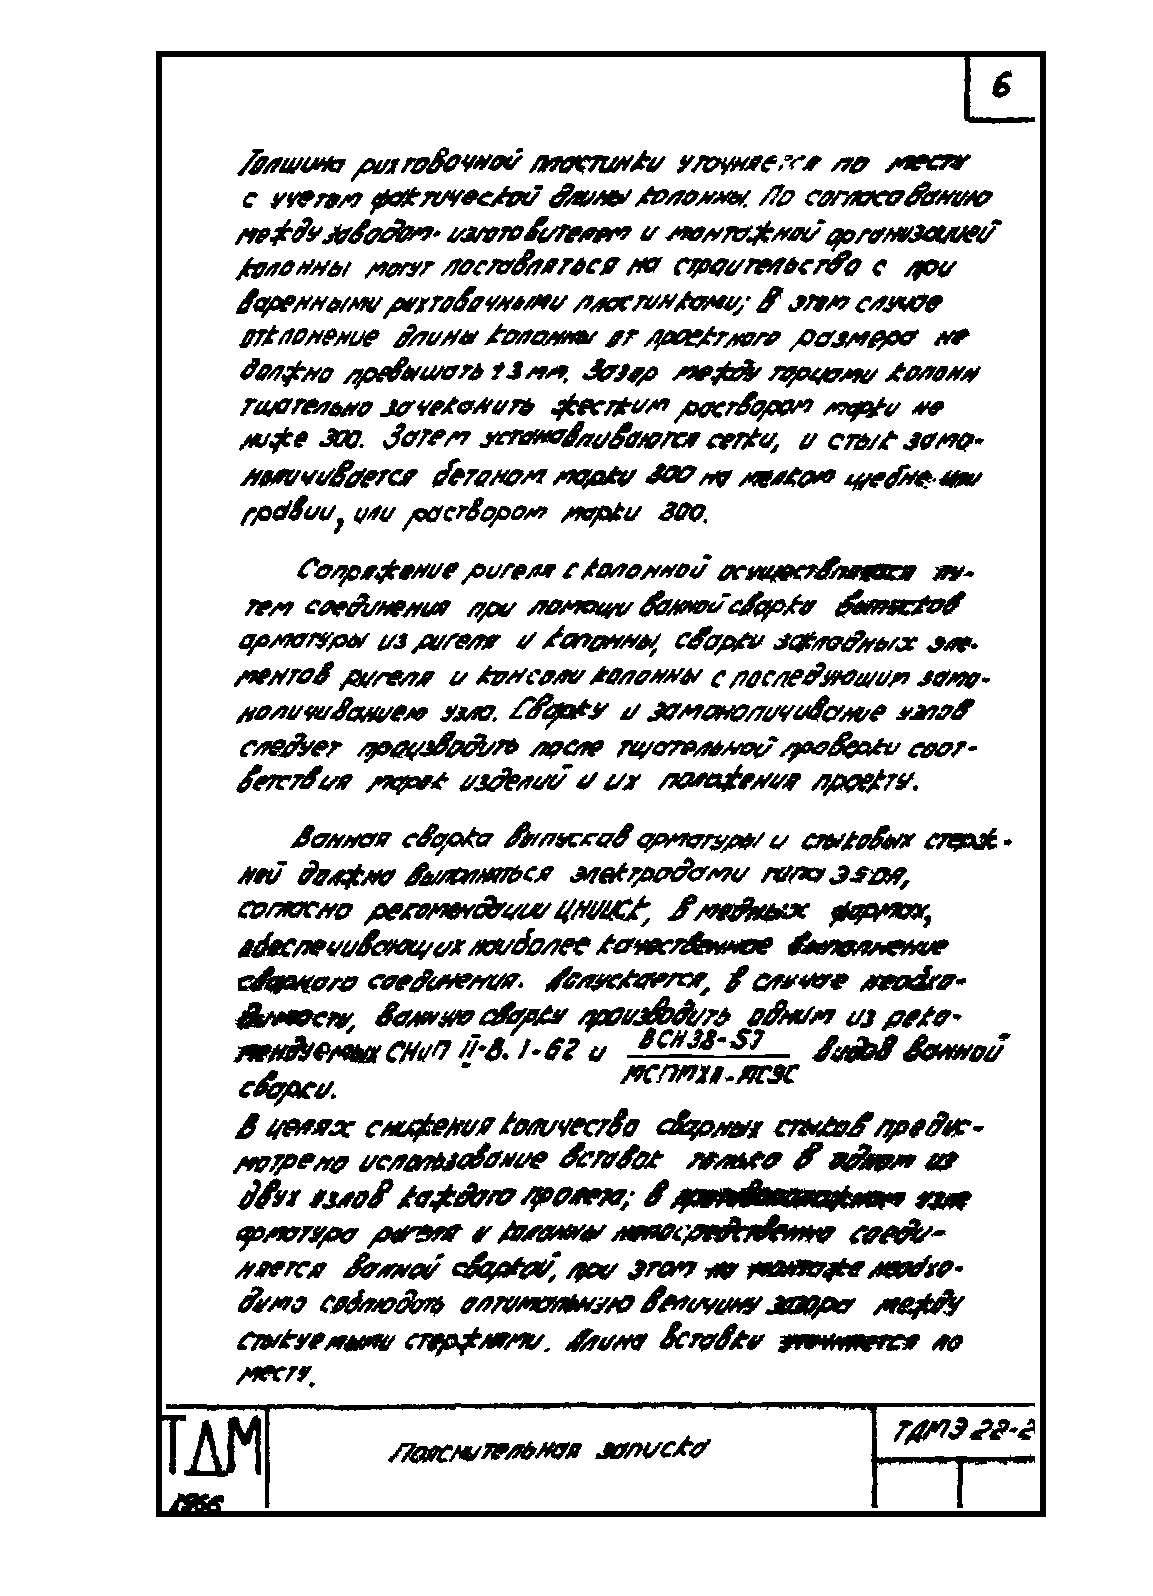 6
Толщина рихтовочной пластинки уточняется по месту
с учетом фактической длины колонны. По согласованию
между заводом-изготовителем и монтажной организацией
колонны могут поставляться на строительство с при
варенными рихтовочными пластинками; В этом случае
отклонение длины колонны от проектного размера не
должно превышать ±3мм. Зазор между торцами колонн
тщательно зачеканить жестким раствором марки не
ниже 300. Затем устанавливаются сетки, и стык замо-
ноличивается бетоном марки 300 на мелком щебне или
гравии, или раствором марки 300.
Сопряжение ригеля с колонной осуществляется пу-
тем соединения при помощи ванной сварки выпусков
арматуры из ригеля и колонны, сварки закладных эле-
ментов ригеля и консоли колонны с последующим замо-
ноличиванием узла. Сварку и замоноличивание узлов
следует производить после тщательной проверки соот-
ветствия марок изделий и их положения проекту.
Ванная сварка выпусков арматуры и стыковых стерж-
ней должна выполняться электродами типа Э50А,
согласно рекомендации ЦНИИСК, в медных формах,
обеспечивающих наиболее качественное выполнение
сварного соединения. Допускается, в случае необхо-
димости, ванную сварку производить одним из реко-
мендуемых СНиП II-В. 1-62 и ВСН38-57 видов ванной
МСПМХП-МСЭС
сварки.
В целях снижения количества сварных стыков предус-
мотрено использование вставок только в одном из
двух узлов каждого пролета; в противоположном узле
арматура ригеля и колонны непосредственно соеди-
няется ванной сваркой, при этом на монтаже необхо-
димо соблюдать оптимальную величину зазора между
стыкуемыми стержнями. Длина вставки уточняется по
месту.
ТДМ
1966
Пояснительная записка
ТДМЭ 22-2